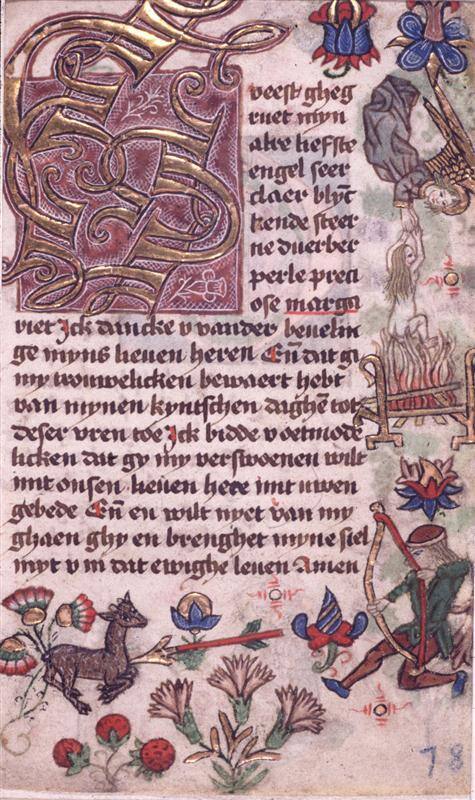 Sveest ghegruet
ruet myn
alre liefste
engel seer
claer blyc̄
kende steer
ne duerber
perle preci
ose marga
riet Ick dancke v vander beuelin
ge myns lieuen heren En̄ dat gi
my trouwelicken bewaert hebt
van mynen kyntschen daghē tot
deser vren toe Ick bidde v oetmode
licken dat gy my verswoenen wilt
mit onsen lieuen here mit uwen
gebede En̄ en wilt nyet van my
ghaen ghy en brenghet myne siel
myt v in dat ewighe leuen Amen
78